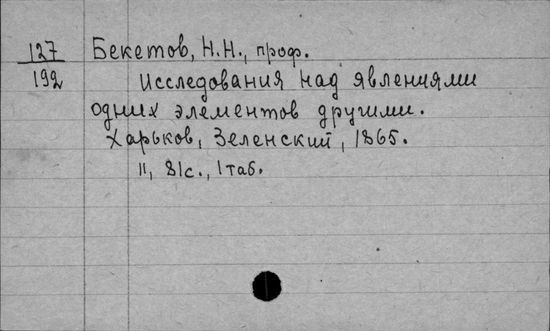 127 Бекетов, Н.Н., проф.
192 Исследования над явлениями
одних элементов другими.
Харьков, Зеленский, 1865.
II, 81с., 1 таб.